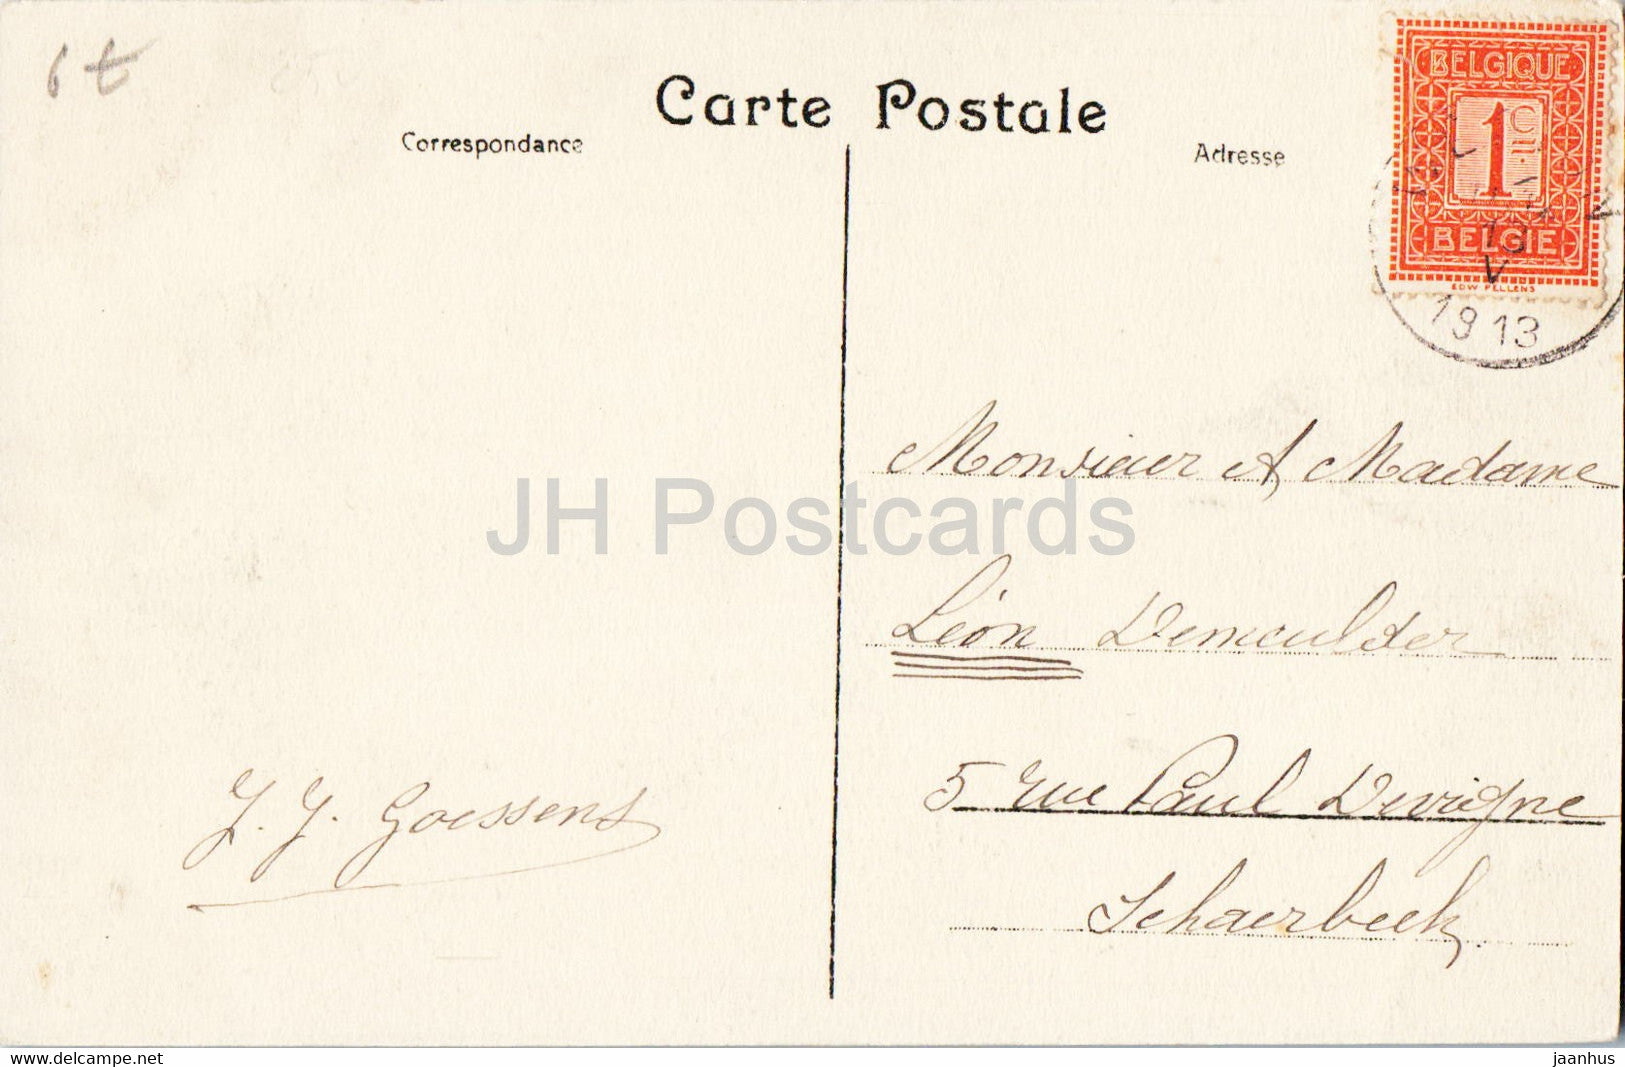 6t
Carte Postale
Correspondance
Adresse
BELGIQUE
1 C
BELGIE
EDW PELLENS
V
1913
Monsieur et Madame
JH Postcards
Léon Demeulder
5 rue Paul Devigne
J. J. Goessens
Schaerbeek
www.delcampe.net
jaanhus